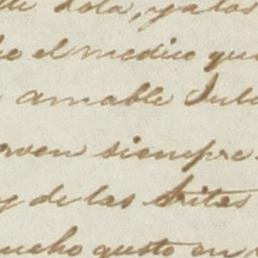 sola, y a los
el medico que
amable Sul
oven siempre
y de las Sritas
mucho gusto en